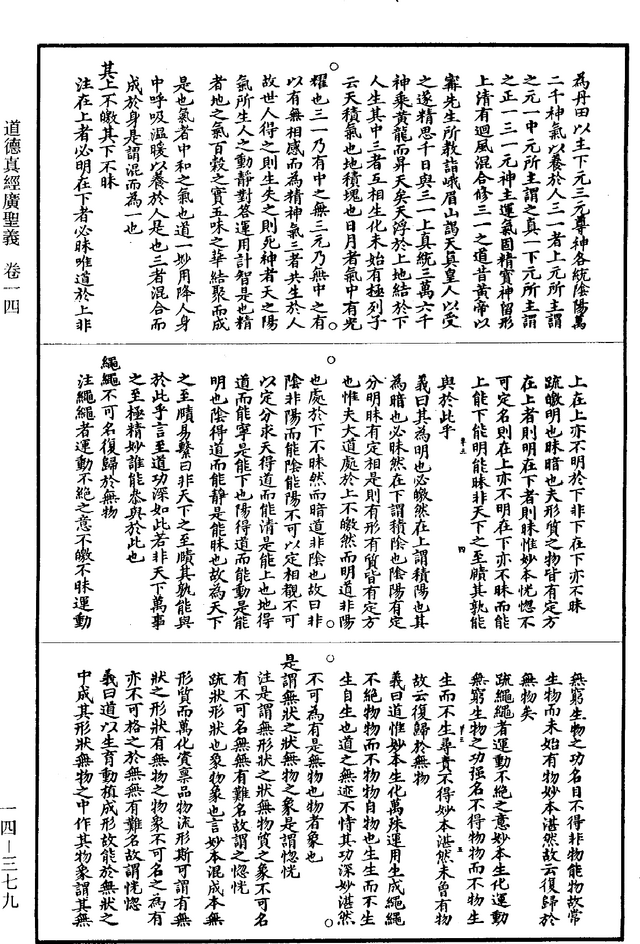 道德真經廣聖義　卷一四
一四—三七九
為丹田以主下元三元尊神各統陰陽萬
二千神氣以養於人三一者上元所主謂
之元一中元所主謂之真一下元所主謂
之正一三一元神主運氣固精寶神留形
上清有迴風混合修三一之道昔黃帝以
甯先生所教詣峨眉山謁天真皇人以受
之遂精思千日與三一上真統三萬六千
神乘黃龍而昇天矣天浮於上地結於下
人生其中三者互相生化未始有極列子
云天積氣也地積塊也日月者氣中有光
耀也三一乃有中之無三元乃無中之有
以有無相感而為精神氣三者共生於人
故世人得之則生失之則死神者天之陽
氣所生人之動靜對答運用計智是也精
者地之氣百穀之實五味之華結聚而成
是也氣者中和之氣也道一妙用降人身
中呼吸溫暖以養於人是也三者混合而
成於身是謂混而為一也
其上不皦其下不昧
注在上者必明在下者必昧唯道於上非
上在上亦不明於下非下在下亦不昧
疏皦明也昧暗也夫形質之物皆有定方
在上者則明在下者則昧惟妙本恍惚不
可定名則在上亦不明在下亦不昧而能
上能下能明能昧非天下之至賾其孰能
與於此乎
義曰其為明也必皦然在上謂積陽也其
為暗也必昧然在下謂積陰也陰陽有定
分明昧有定相是則有形有質皆有定方
也惟夫大道處於上不皦然而明道非陽
也處於下不昧然而暗道非陰也故曰非
陰非陽而能陰能陽不可以定相觀不可
以定分求天得道而能清是能上也地得
道而能寧是能下也陽得道而能動是能
明也陰得道而能靜是能昧也故為天下
之至賾易繫曰非天下之至賾其孰能與
於此乎言至道功深如此若非天下萬事
之至極精妙誰能參與於此也
繩繩不可名復歸於無物
注繩繩者運動不絕之意不皦不昧運動
無窮生物之功名目不得非物能物故常
生物而未始有物妙本湛然故云復歸於
無物矣
疏繩繩者運動不絕之意妙本生化運動
無窮生物之功强名不得物物而不物生
生而不生尋責不得妙本湛然未曾有物
故云復歸於無物
義曰道惟妙本生化萬殊運用生成繩繩
不絕物物而不物物自物也生生而不生
生自生也道之無迹不恃其功深妙湛然
不可為有是無物也物者象也
是謂無狀之狀無物之象是謂惚恍
注是謂無形狀之狀無物質之象不可名
有不可名無無有難名故謂之惚恍
疏狀形狀也象物象也言妙本混成本無
形質而萬化資稟品物流形斯可謂有無
狀之形狀有無物之物象不可名之為有
亦不可格之於無無有難名故謂恍惚
義曰道以生育動植成形故能於無狀之
中成其形狀無物之中作其物象謂其無